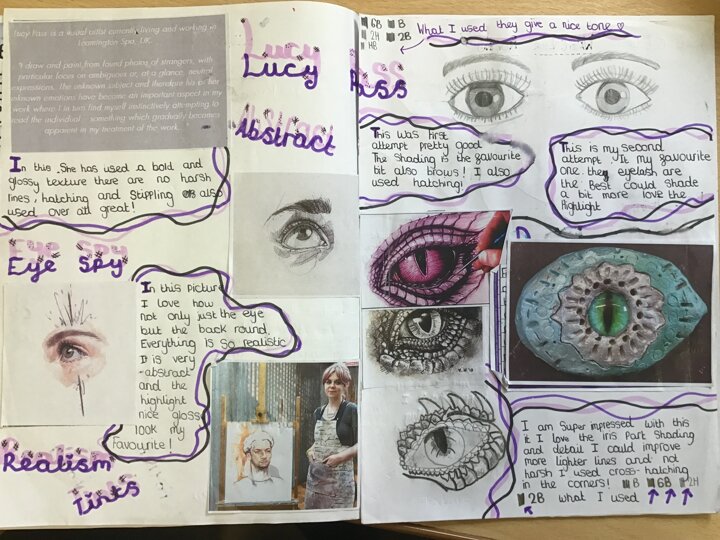 Lucy Pass is a visual artist currently living and working in
Leamington Spa, UK.
"I draw and paint from found photos of strangers, with
particular focus on ambiguous or, at a glance, neutral
expressions. The unknown subject and therefore his or her
unknown emotions have become an important aspect in my
work where I in turn find myself instinctively attempting to
read the individual - something which gradually becomes
apparent in my treatment of the work.
Lucy
Pass
Abstract
In this, She has used a bold and
glossy texture there are no harsh
lines, hatching and Stippling also
used over all great!
Eye SPY
Eye SPY
In this picture
I love how
not only just the eye
but the back round.
Everything is so realistic
It is very
-abstract
and the
highlight
nice gloss
look my
Favourite!
Realism
Tints
6B B
2H 2B
HB
What I used they give a nice tone
This was first
attempt pretty good
The shading is the favourite
bit also brows! I also
used hatching!
This is my second
attempt. It my favourite
one. they eyelash are
the Best could shade
a bit more love the
Highlight
I am Super impressed with this
it I love the iris Part Shading
and detail I could improve
more lighter lines and not
harsh I used cross-hatching
in the corners! B 6B 2H
2B what I used